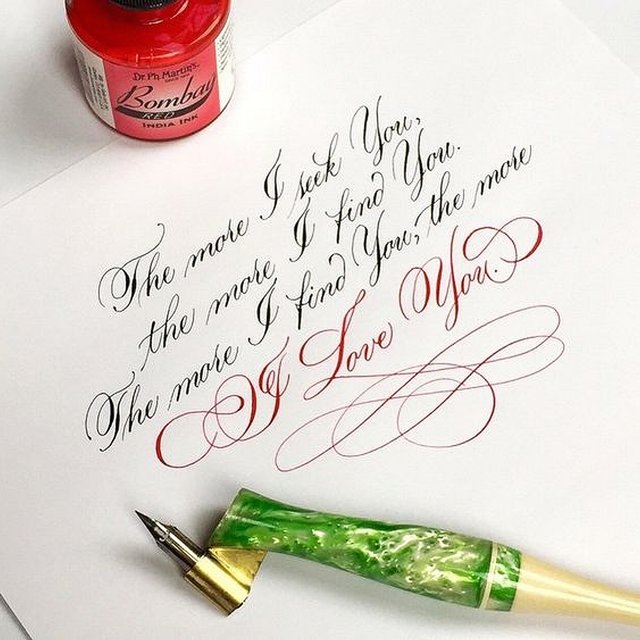 Dr. Ph. Martin's
Bombay
RED
INDIA INK
The more I seek You,
the more I find You.
The more I find You, the more
I Love You.